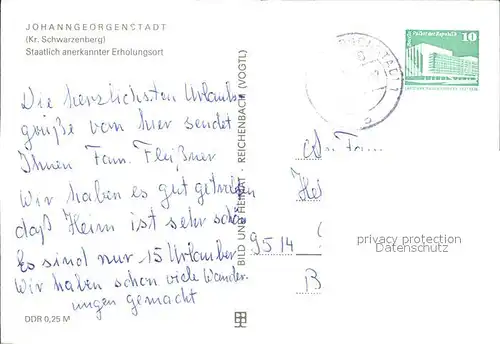 JOHANNGEORGENSTADT
(Kr. Schwarzenberg)
Staatlich anerkannter Erholungsort
Die herzlichsten Urlaubs-
grüße von hier sendet
Ihnen Fam. Fleißner
Wir haben es gut getroffen
daß Heim ist sehr schön
Es sind nur 15 Urlauber.
Wir haben schon viele Wander-
ungen gemacht
DDR 0,25 M
BILD UND HEIMAT · REICHENBACH (VOGTL)
Palast der Republik
10
An Fam.
9514
B
privacy protection
Datenschutz